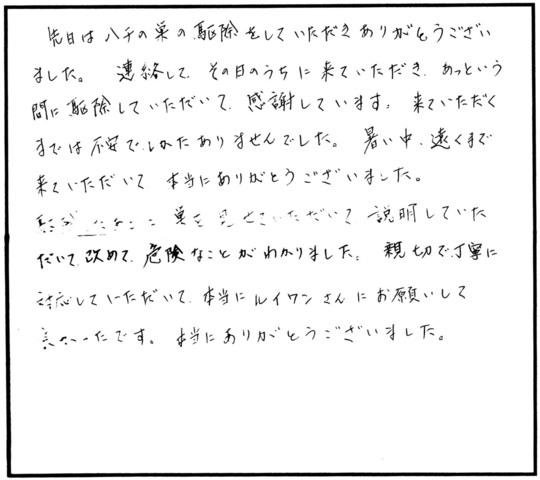 先日はハチの巣の駆除をしていただきありがとうござい
ました。 連絡して、その日のうちに来ていただき、あっという
間に駆除していただいて、感謝しています。 来ていただく
までは不安でしかたありませんでした。 暑い中、遠くまで
来ていただいて 本当にありがとうございました。
巣を見せていただいて 説明していた
だいて、改めて、危険なことがわかりました。 親切で丁寧に
対応していただいて、本当にルイワンさんにお願いして
良かったです。 本当にありがとうございました。